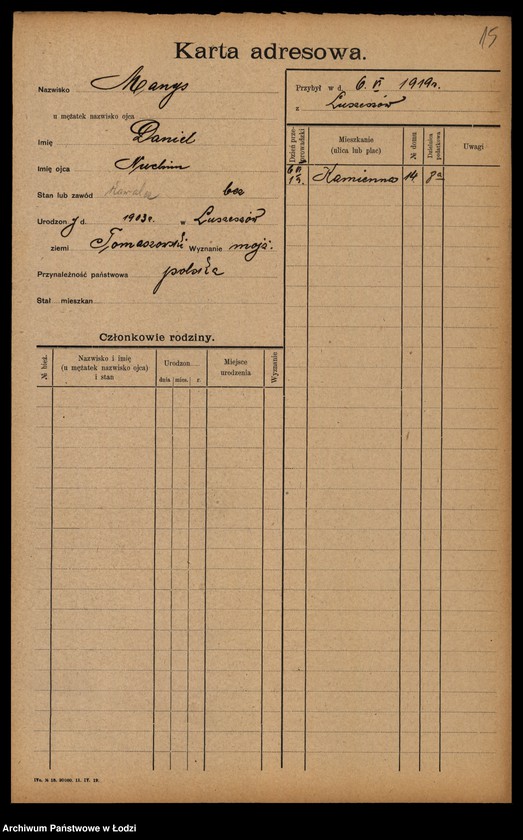 15
Karta adresowa.
Nazwisko Manys
u mężatek nazwisko ojca
Imię Daniel
Imię ojca
Stan lub zawód Kawaler bez
Urodzony d. 1903r. w
ziemi Tomaszowski Wyznanie mojż.
Przynależność państwowa polska
Stał mieszkan
Przybył w d. 6. VI 1919r.
z
Dzień przeprowadzki
Mieszkanie
(ulica lub plac)
№ domu
Dzielnica podatkowa
Uwagi
6 VI 19. Kamienna 14 8a
Członkowie rodziny.
№ bież.
Nazwisko i imię
(u mężatek nazwisko ojca)
i stan
Urodzon
dnia mies. r.
Miejsce
urodzenia
Wyznanie
Archiwum Państwowe w Łodzi